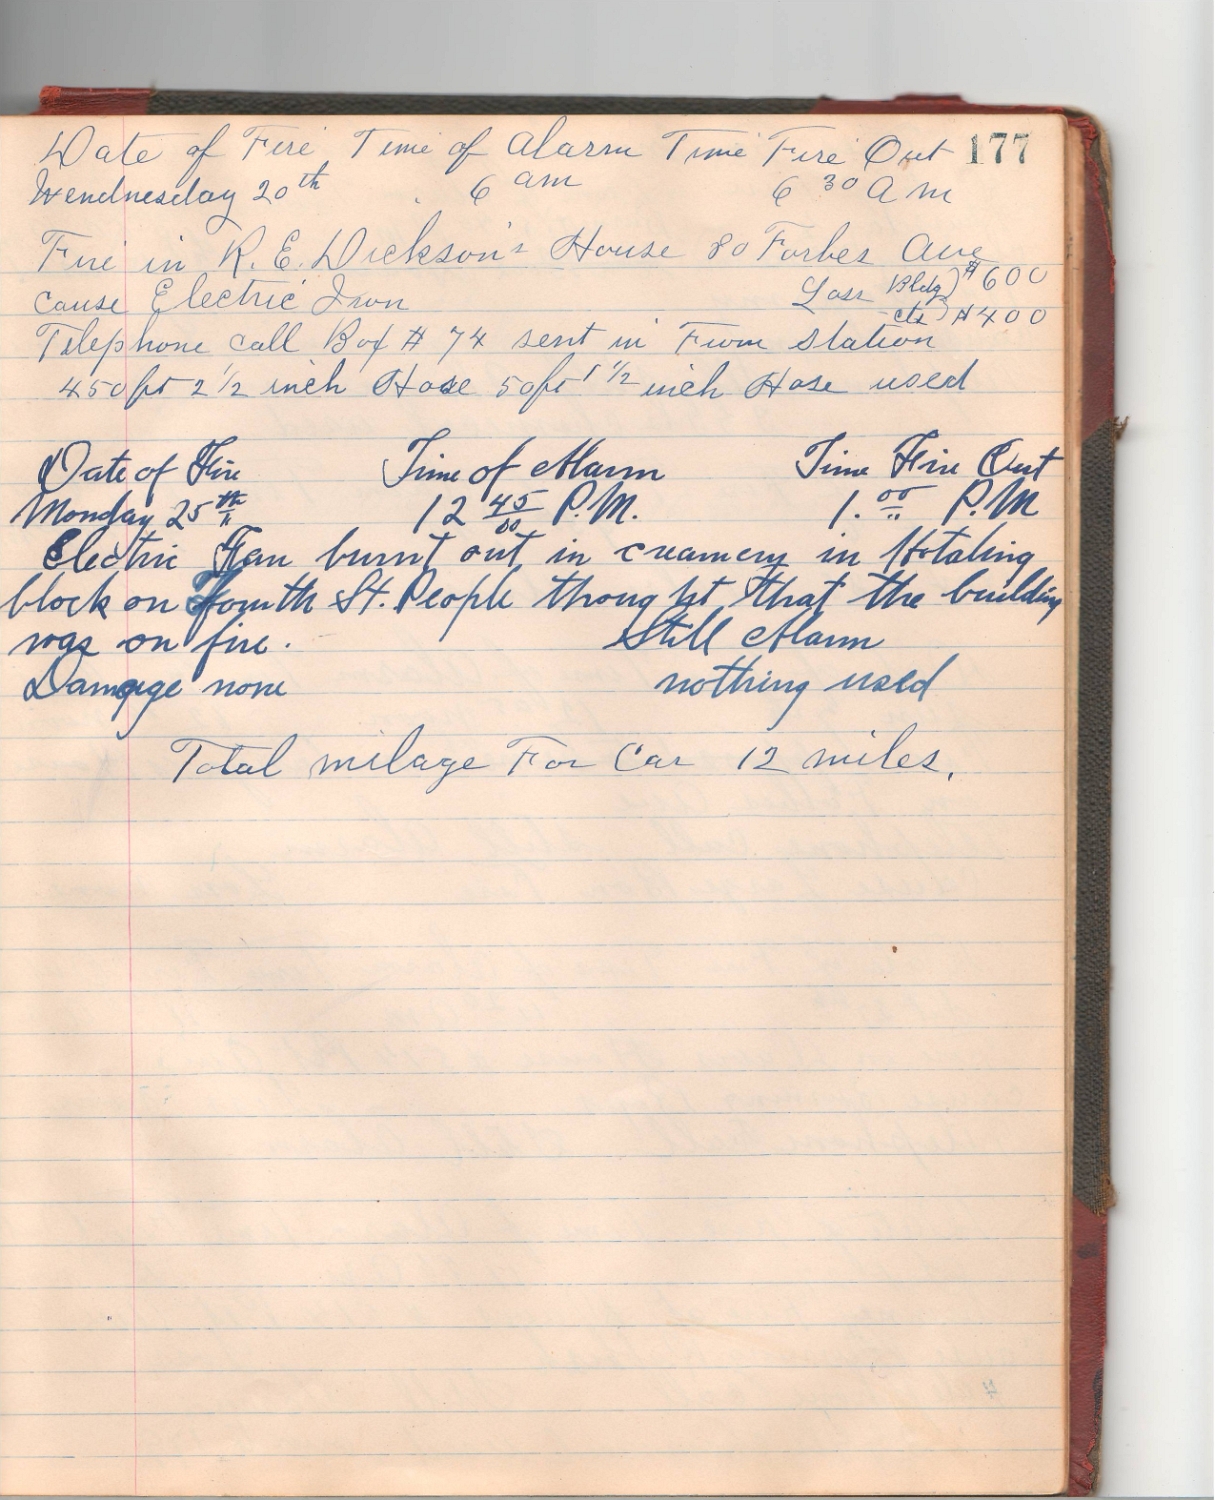 Date of Fire Time of Alarm Time Fire Out 177
Wendnesday 20th 6 am 6 30 A m
Fire in R. E. Dickson's House 80 Forbes Ave
cause Electric Iron Loss Bldg) $600
cts) $400
Telephone call Box # 74 sent in From Station
450ft 2 1/2 inch Hose 50ft 1 1/2 inch Hose used
Date of Fire Time of Alarm Time Fire Out
Monday 25th 12 45 P.M. 1. 00 P.M
Electric Fan burnt out in creamery in Hotaling
block on Fourth St. People thought that the building
was on fire. Still Alarm
Damage none nothing used
Total milage For Car 12 miles.